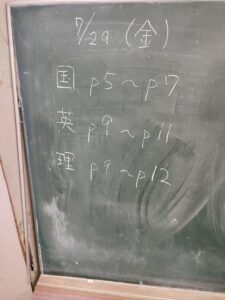 7/29 (金)
国 p5~p7
英 p9~p11
理 p9~p12